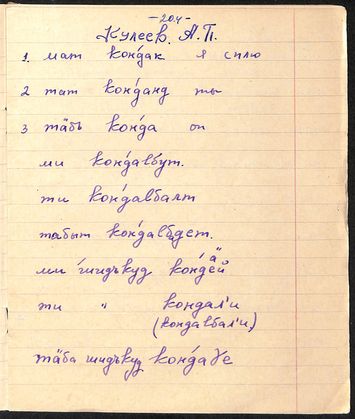 -204-
Кулеев. А.П.
1. мат кондак я сплю
2 тат конданд ты
3 тӓбъ конда он
ми кондалбут.
ти кондалбалт
табыт кондалбадет.
ми шидъкуд кондей ӓ
ти " кондал'и
(кондалбал'и)
тӓба шидъкуд кондаɣе